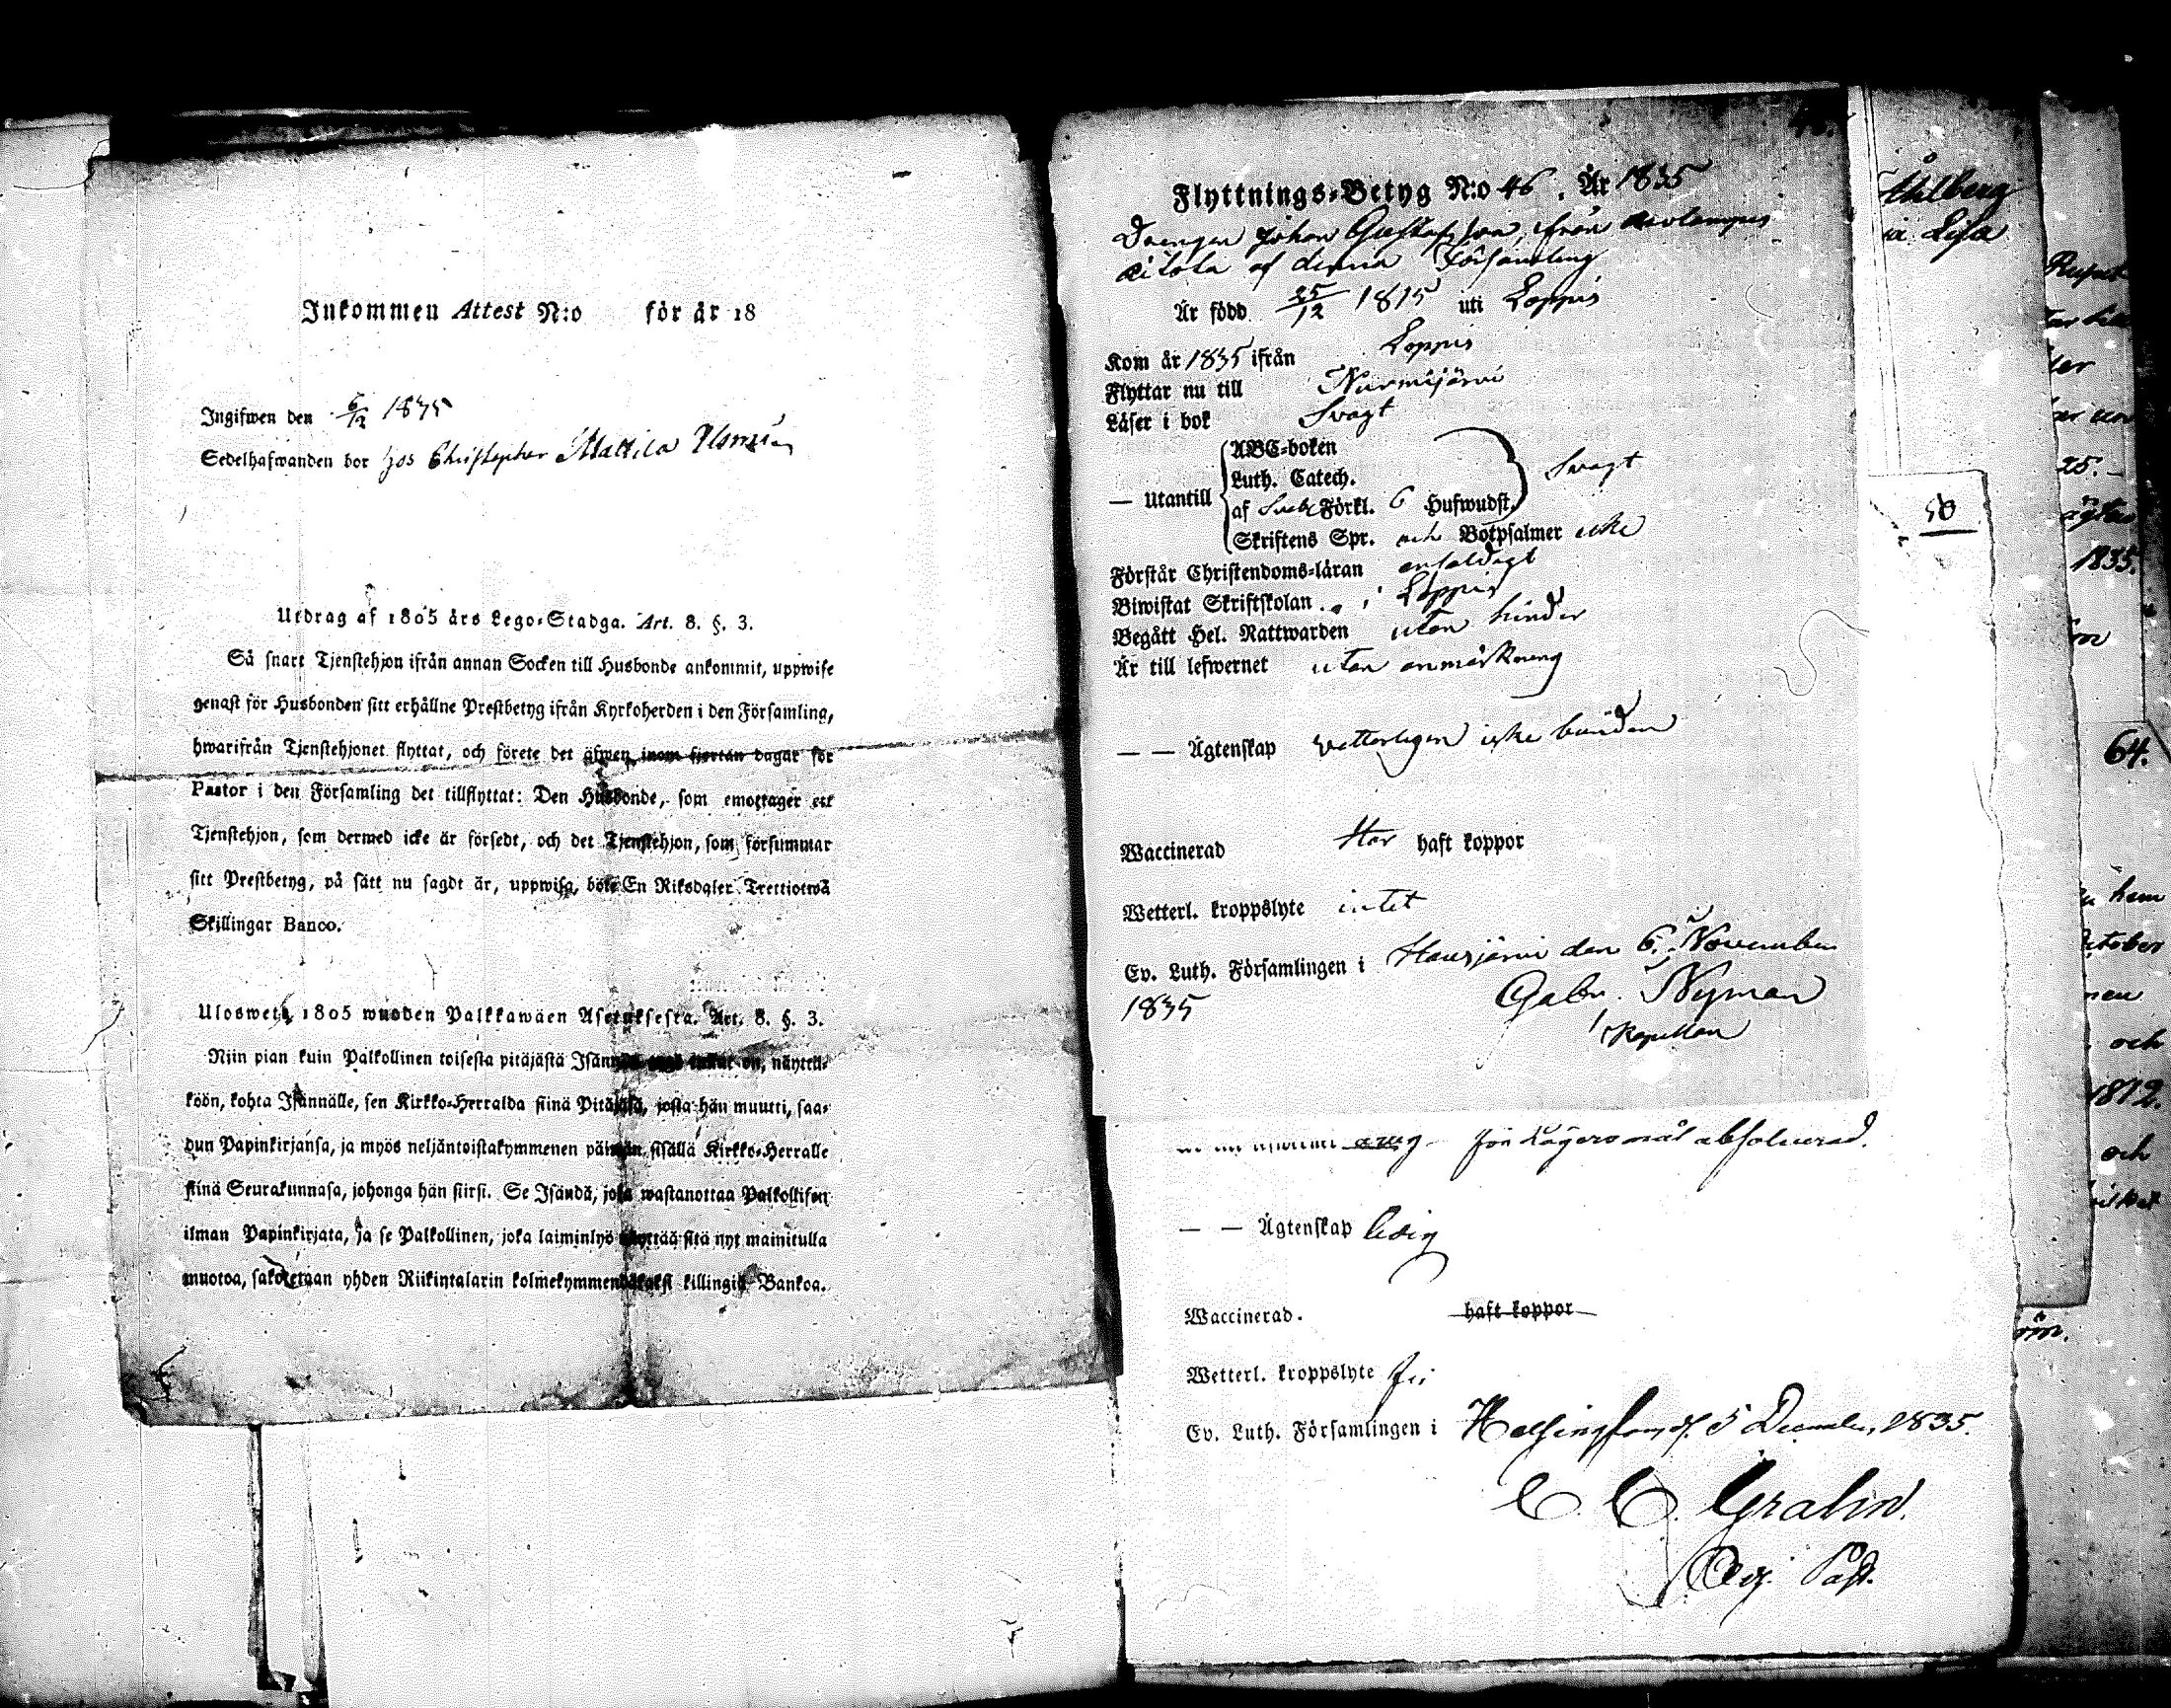 Inkommen Attest N:o för år 18
Ingifwen den 6/12 1835
Sedelhafwanden bor hos Christopher Mattila
Utdrag af 1805 års Lego-Stadga. Art. 8. §. 3.
Så snart Tjenstehjon ifrån annan Socken till Husbonde ankommit, uppwise
genast för Husbonden sitt erhållne Prestbetyg ifrån Kyrkoherden i den Församling,
hwarifrån Tjenstehjonet flyttat, och förete det äfwen inom fjortan dagar för
Pastor i den Församling det tillflyttat: Den Husbonde, som emottager ett
Tjenstehjon, som dermed icke är försedt, och det Tjenstehjon, som försummar
sitt Prestbetyg, på sätt nu sagdt är, uppwisa, böte En Riksdaler Trettiotwå
Skillingar Banco.
Uloswetä 1805 wuoden Palkkawäen Asetuksesta. Art. 8. §. 3.
Niin pian kuin Palkollinen toisesta pitäjästä on, näyttä-
köön, kohta Isännälle, sen Kirkko-Herralda siinä Pitäjäsä, josta hän muutti, saa-
dun Papinkirjansa, ja myös neljäntoistakymmenen päiwän sisällä Kirkko-Herralle
siinä Seurakunnasa, johonga hän siirsi. Se Isändä, joka wastanottaa Palkollisen
ilman Papinkirjata, ja se Palkollinen, joka laiminlyö näyttää sitä nyt mainitulla
muotoa, sakotetaan yhden Riikintalarin kolmekymmendäkaksi killingiä Bankoa.
Flyttnings-Betyg N:o 46. År 1835
Drengen Johan Gustafsson, ifrån
af denna Församling
Är född 25/12 1815 uti Loppis
Kom år 1835 ifrån Loppis
Flyttar nu till Nurmijärvi
Läser i bok Svagt
— Utantill ABC-boken
Luth. Catech. Svagt
af Sveb. Förkl. 6 Hufwudst.
Skriftens Spr. och Botpsalmer icke
Förstår Christendoms-läran enfaldigt
Biwistat Skriftskolan i Loppis
Begått Hel. Nattwarden utan hinder
Är till lefwernet utan anmärkning
— — Ägtenskap vetterligen icke bunden
Waccinerad Har haft koppor
Wetterl. kroppslyte intet
Ev. Luth. Församlingen i Hausjärvi den 6. November
1835 Gabr. Nyman
Kapellan
för Lägersmål absolverad.
— — Ägtenskap ledig
Waccinerad. haft koppor
Wetterl. kroppslyte fri
Ev. Luth. Församlingen i Helsingfors d. 5 December 1835.
Adj. Past.
Ahlberg
Lisa
50
25.
1835.
64.
hem
October
och
1812.
och